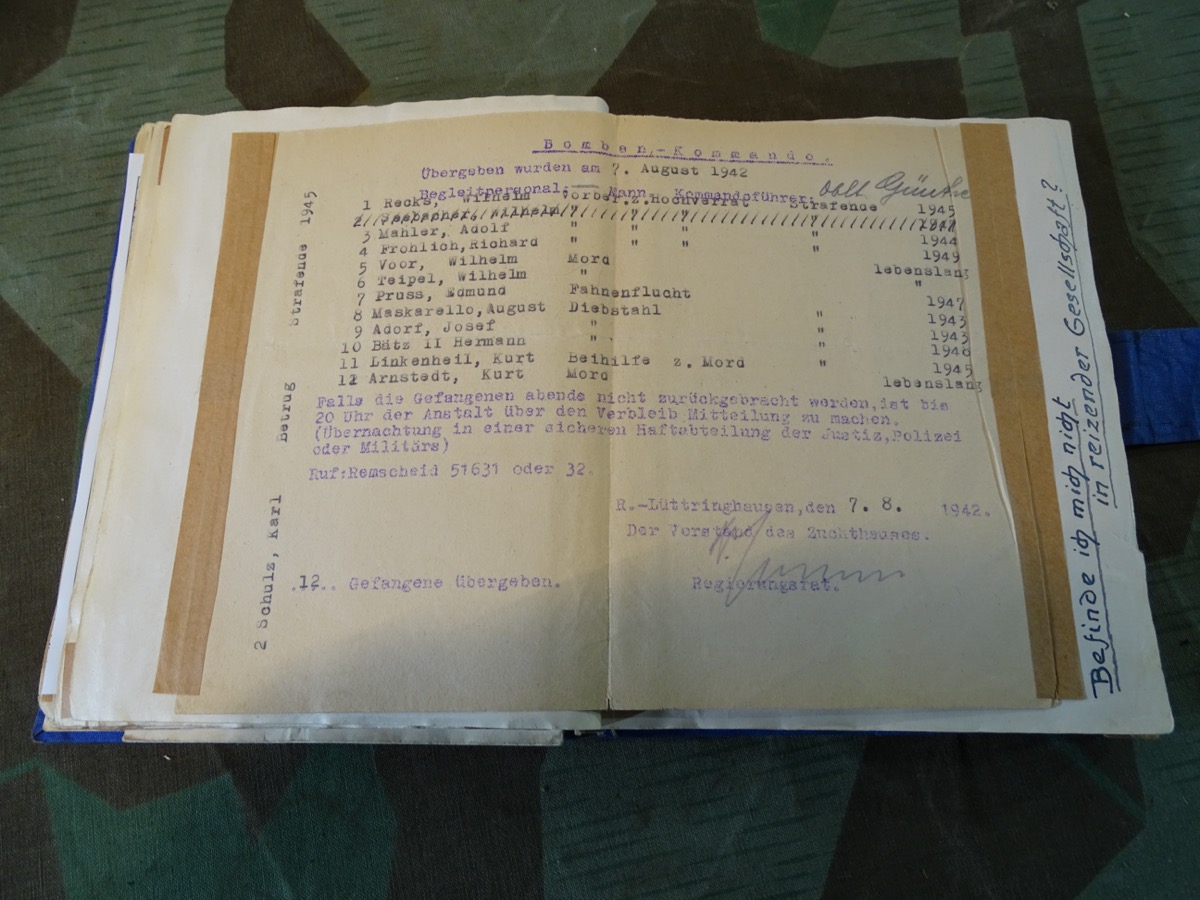 Bomben-Kommando.
Übergeben wurden am 7. August 1942
Begleitpersonal: Mann. Kommandoführer:
1 Recks, Wilhelm Vorber.z.Hochverrat Strafende 1945
2 Seebacher, Wilhelm " " " "
3 Mahler, Adolf " " " " 1944
4 Fröhlich,Richard " " " " 1949
5 Voor, Wilhelm Mord lebenslang
6 Teipel, Wilhelm " "
7 Pruss, Edmund Fahnenflucht 1947
8 Maskarello,August Diebstahl " 1943
9 Adorf, Josef " " 1943
10 Bätz II Hermann " " 1948
11 Linkenheil, Kurt Beihilfe z. Mord " 1945
12 Arnstedt, Kurt Mord lebenslang
Falls die Gefangenen abends nicht zurückgebracht werden,ist bis
20 Uhr der Anstalt über den Verbleib Mitteilung zu machen.
(Übernachtung in einer sicheren Haftabteilung der Justiz,Polizei
oder Militärs)
Ruf:Remscheid 51631 oder 32.
R.-Lüttringhausen,den 7. 8. 1942.
Der Vorstand des Zuchthauses.
.12.. Gefangene übergeben.
Regierungsrat.
2 Schulz, Karl Betrug Strafende 1945
Befinde ich mich nicht
in reizender Gesellschaft?